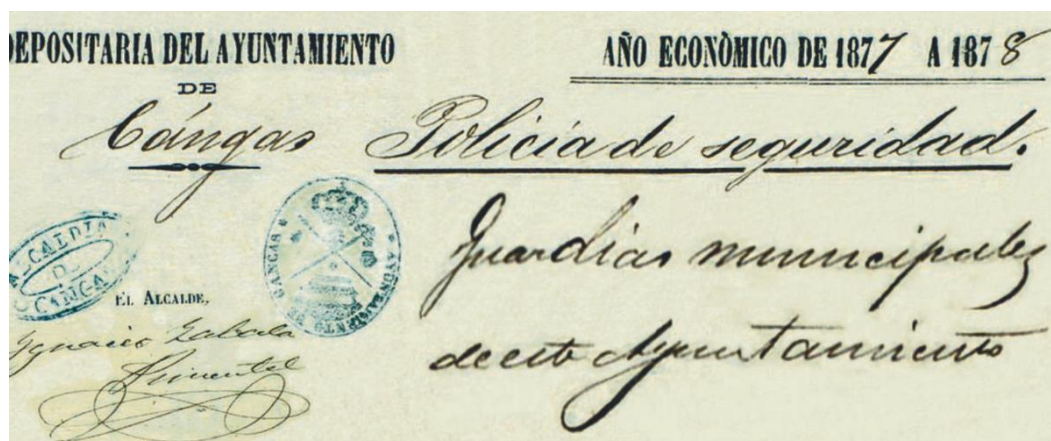 DEPOSITARIA DEL AYUNTAMIENTO
DE
Cángas
AÑO ECONÒMICO DE 1877 A 1878
Policía de seguridad.
Guardias municipales
de este Ayuntamiento
ALCALDIA
DE
CANGAS
AYUNTAMIENTO DE CANGAS
EL ALCALDE,
Ygnacio Zabala
Pimentel